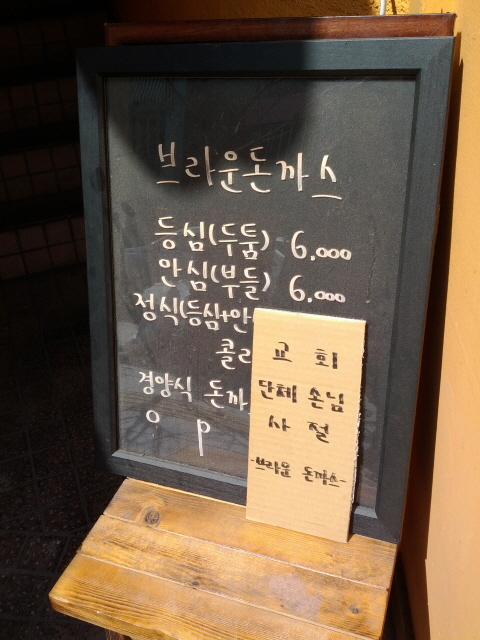 브라운돈까스
등심(두툼) 6.000
안심(부들) 6.000
정식(등심+안
콜라
경양식 돈까
교 회
단체 손님
사 절
-브라운 돈까스-